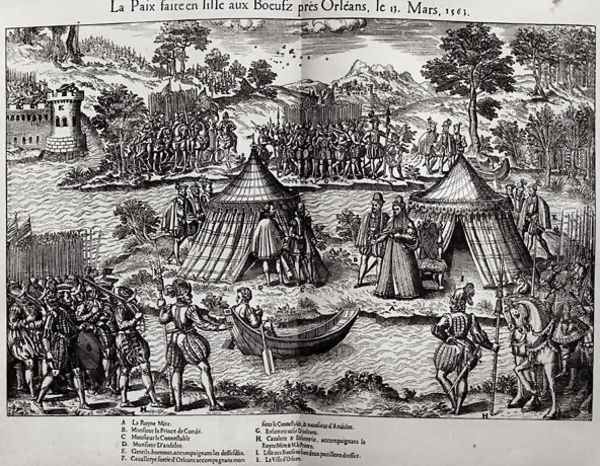 La Paix faite en lisle aux Boeufz près Orléans, le 13. Mars, 1563.
A La Royne Mère.
B. Monsieur le Prince de Condé.
C Monsieur le Connestable
D. Monsieur D'andelot.
E. Gentils-hommes, accompagnans les dessusdits.
F. Cavallerye sortie d'Orleans accompagnans mon
sieur le Connestable, & monsieur d'Andelot.
G.
H. Cavalerie & Infanterie, accompagnans la
Royne Mère &
I. L'isle aux Boeufs
L. La Ville d'Orleans.
H